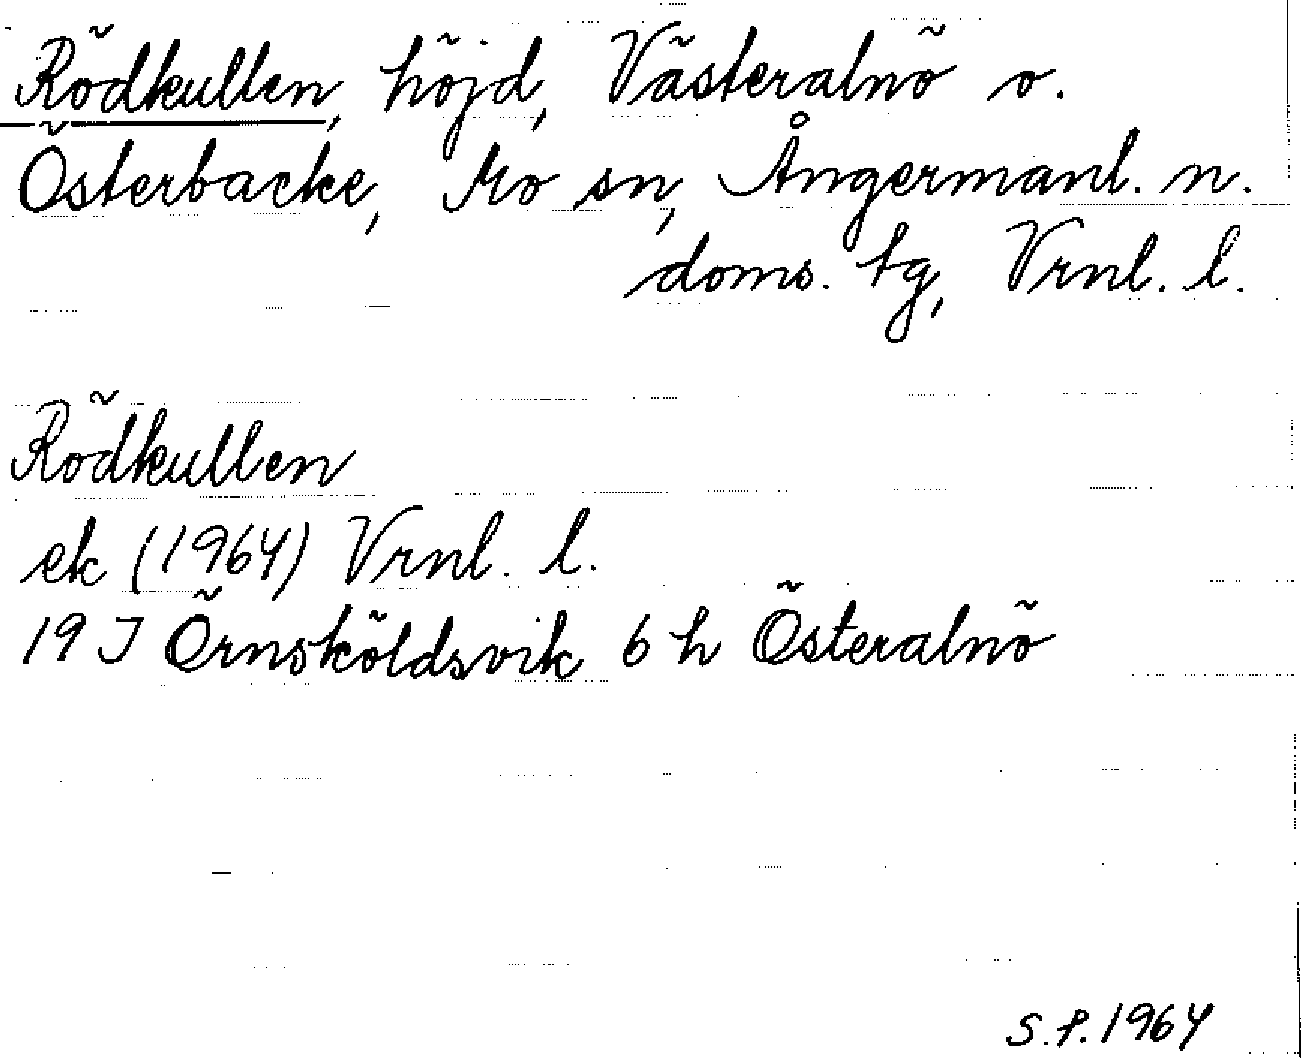 Rödkullen, höjd, Västeralnö o.
Österbacke, Mo sn, Ångermanl. n.
doms. tg, Vrnl. l.
Rödkullen
ek (1964) Vrnl. l.
19 J Örnsköldsvik 6 h Österalnö
S.P. 1964